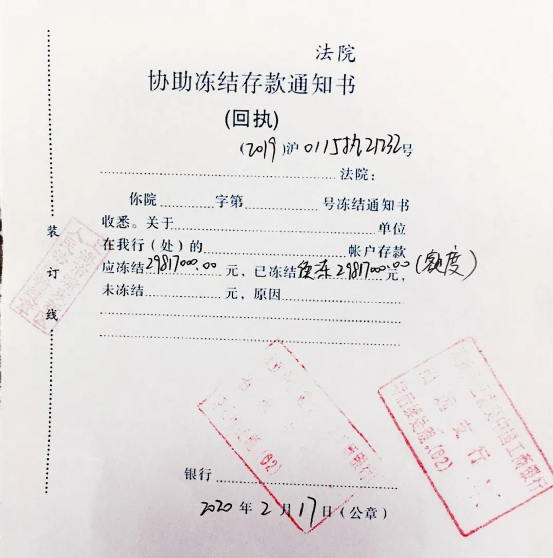 法院
协助冻结存款通知书
(回执)
(2019)沪0115执21232号
法院:
你院 字第 号冻结通知书
收悉。关于 单位
在我行(处)的 帐户存款
应冻结29817000.00元,已冻结 29817000.00元,(额度)
未冻结 元,原因
装
订
线
银行
2020年2月17日(公章)